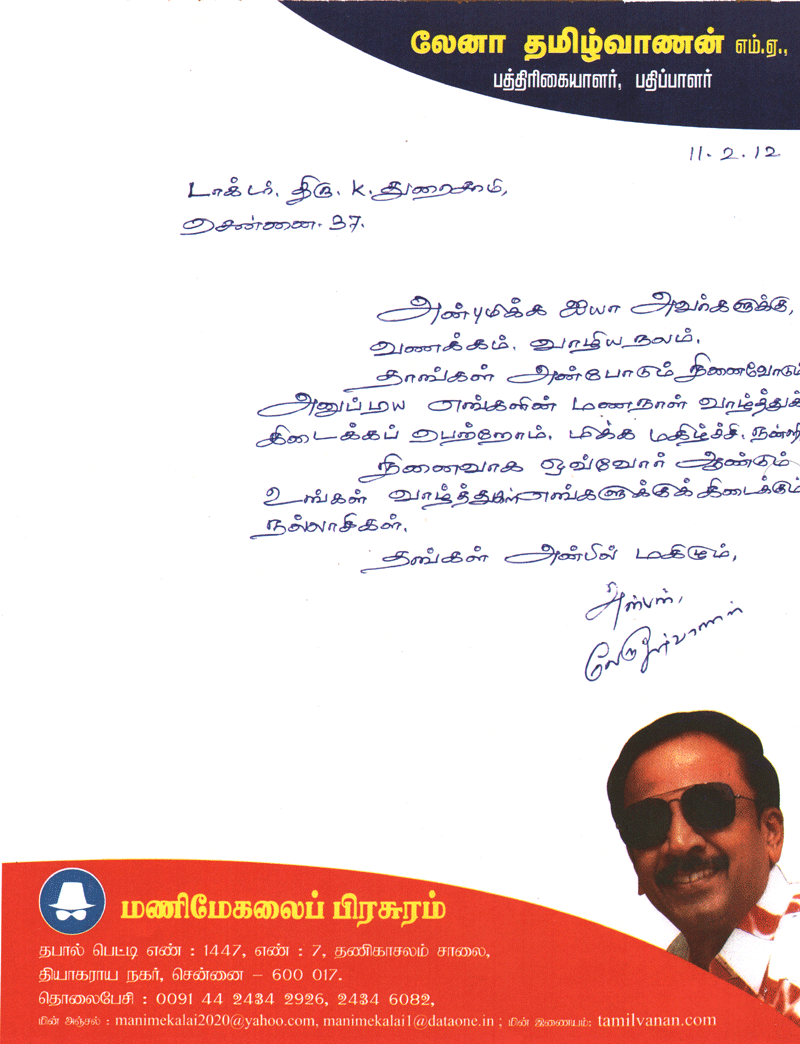 லேனா தமிழ்வாணன் எம்.ஏ.,
பத்திரிகையாளர், பதிப்பாளர்
11.2.12
டாக்டர். திரு. K. துரைசாமி,
சென்னை. 37.
அன்புமிக்க ஐயா அவர்களுக்கு,
வணக்கம். வாழிய நலம்.
தாங்கள் அன்போடும் நினைவோடும்
அனுப்பிய எங்களின் மணநாள் வாழ்த்துக்
கிடைக்கப் பெற்றோம். மிக்க மகிழ்ச்சி. நன்றி
நினைவாக ஒவ்வோர் ஆண்டும்
உங்கள் வாழ்த்துகள் எங்களுக்குக் கிடைக்கும்
நல்லாசிகள்.
தங்கள் அன்பில் மகிழும்,
அன்பன்,
மணிமேகலைப் பிரசுரம்
தபால் பெட்டி எண் : 1447, எண் : 7, தணிகாசலம் சாலை,
தியாகராய நகர், சென்னை – 600 017.
தொலைபேசி : 0091 44 2434 2926, 2434 6082,
மின் அஞ்சல் : manimekalai2020@yahoo.com, manimekalai1@dataone.in ; மின் இணையம்: tamilvanan.com